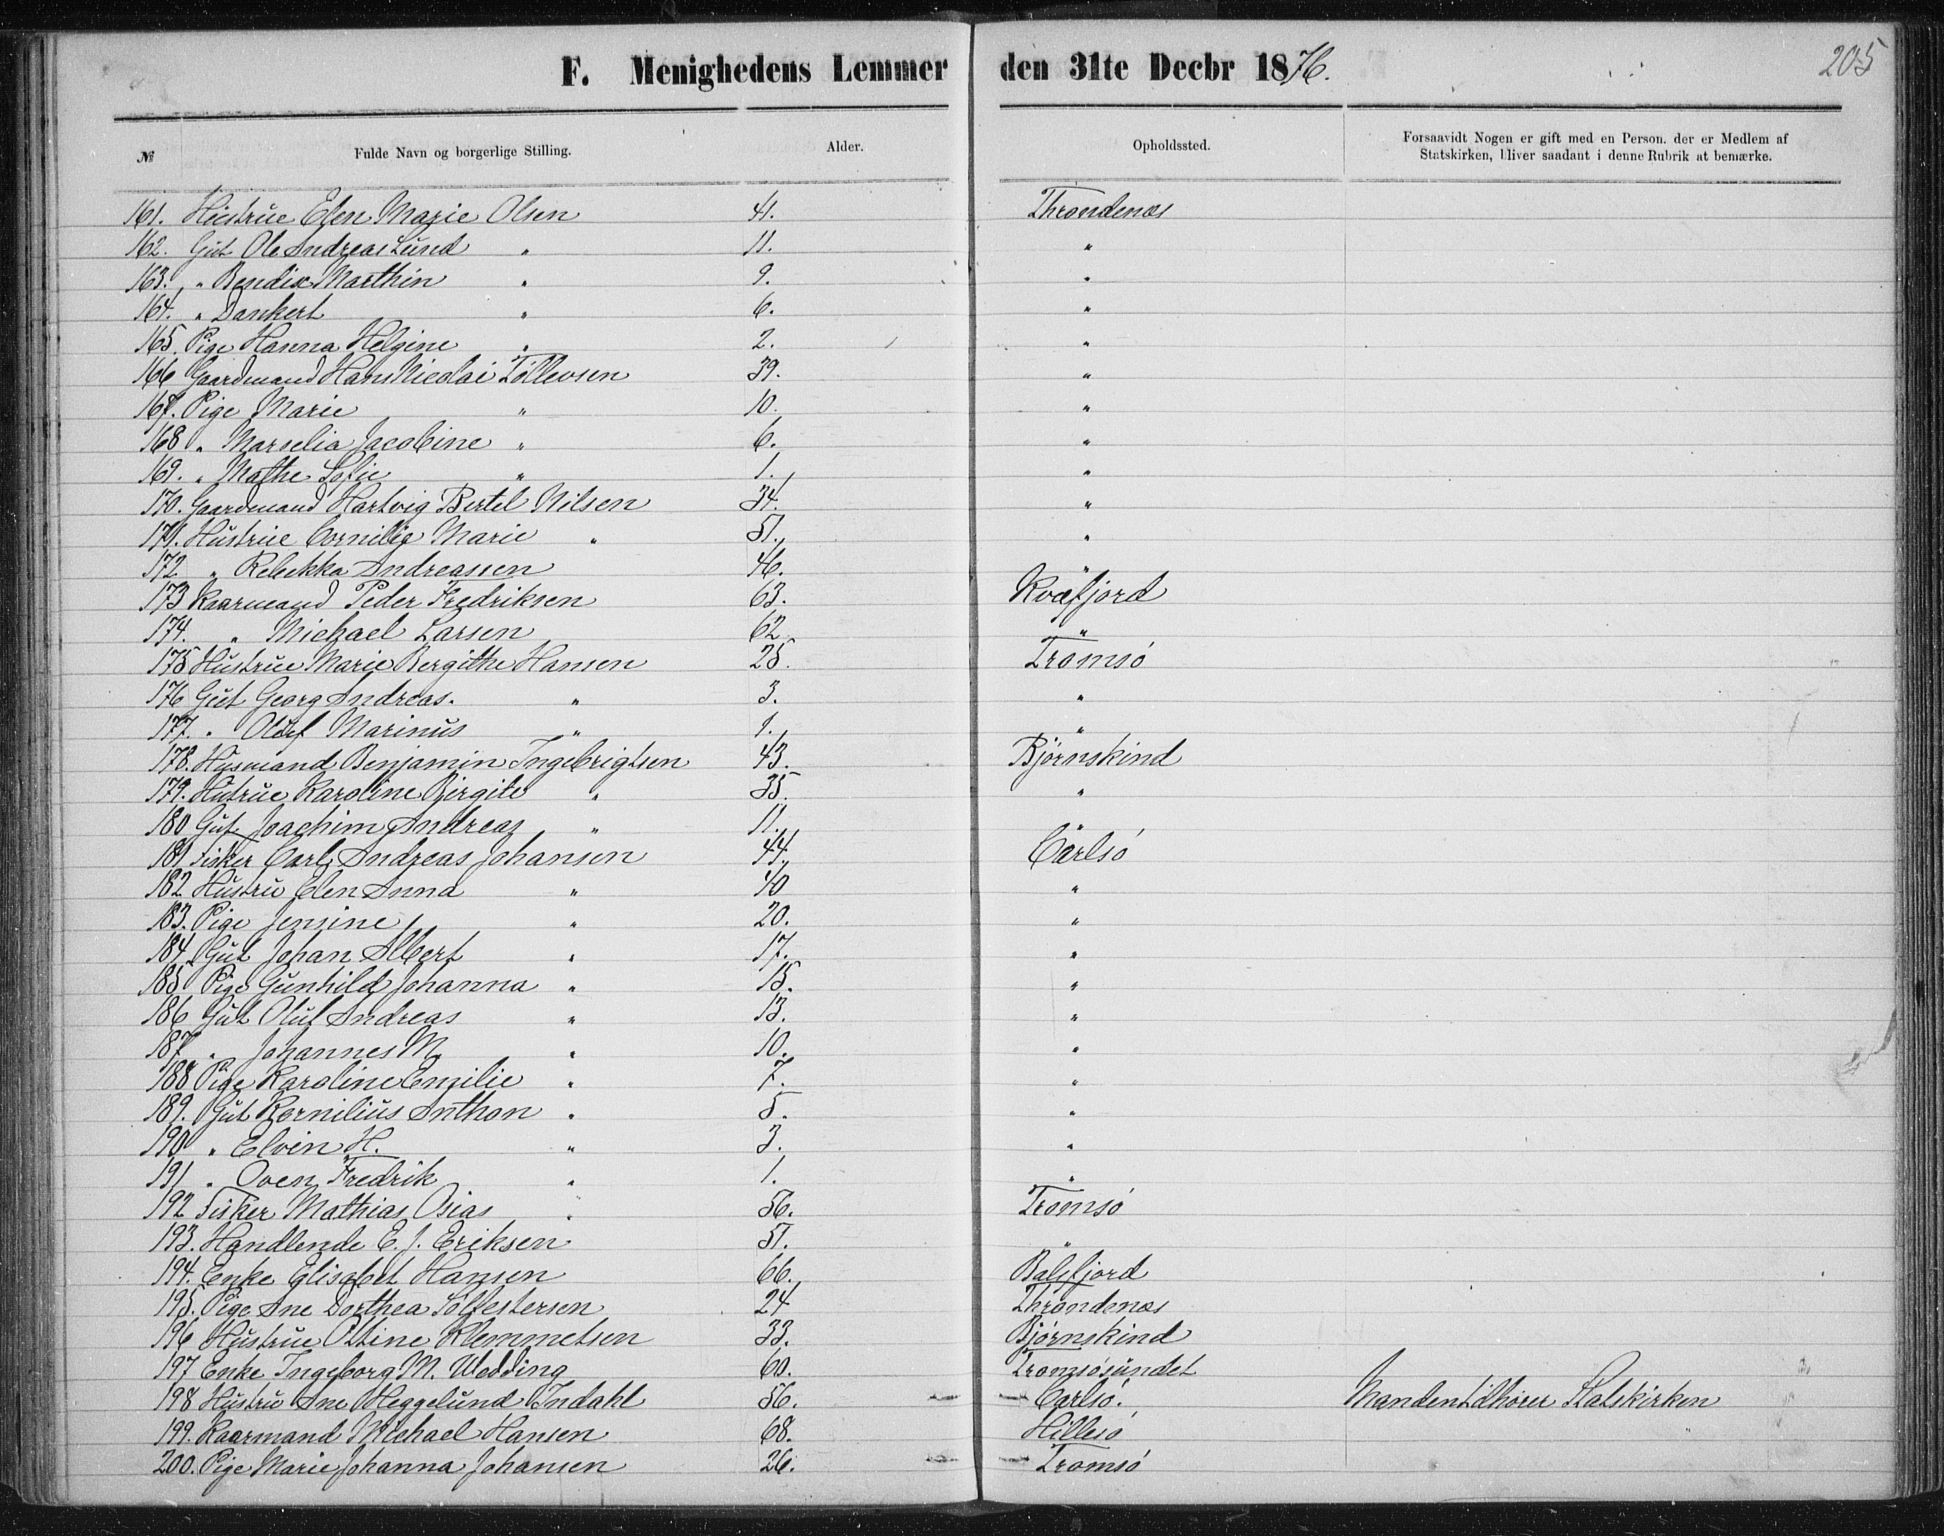 F. Menighedens Lemmer den 31te Decbr 1876. 205
№ Fulde Navn og borgerlige Stilling. Alder. Opholdssted. Forsaavidt Nogen er gift med en Person. der er Medlem af
Statskirken, bliver saadant i denne Rubrik at bemærke.
161. Hustrue Elen Marie Olsen 41. Throndenæs
162. Gut Ole Andreas Lund " 11. "
163. " Bendix Marthin " 9. "
164. " Dankert " 6. "
165. Pige Hanna Helgine " 2. "
166 Gaardmand Hans Nicolai Tøllevsen 39. "
167. Pige Marie " 10. "
168 " Marselia Jacobine " 6. "
169. " Mathe Sofie " 1. "
170. Gaardmand Hartvig Bertel Nilsen 34. "
171. Hustrue Cornilie Marie " 51. "
172 " Rebekka Andreassen 46. "
173 Kaarmand Peder Fredriksen 63. Kvæfjord
174. " Michael Larsen 62 "
175 Hustrue Marie Bergithe Hansen 25. Tromsø
176 Gut Georg Andreas. " 3. "
177. " Oluf Marinus " 1. "
178. Husmand Benjamin Ingebrigtsen 43. Bjørnskind
179. Hutrue Karoline Birgite " 35. "
180 Gut Joachim Andreas " 11. "
181 Fisker Carl Andreas Johansen 44. Carlsø
182 Hustru Elen Anna " 40 "
183. Pige Jensine " 20. "
184. Gut Johan Albert " 17. "
185 Pige Gunhild Johanna " 15. "
186 Gut Oluf Andreas " 13. "
187 " Johannes M. " 10. "
188 Pige Karoline Emilie " 7. "
189. Gut Kornilius Anthon " 5. "
190 " Elvin H. " 3. "
191 " Oven Fredrik " 1. "
192 Fisker Mathias Osias " 56. Tromsø
193. Handlende E. J. Eriksen 51. "
194. Enke Elisabet Hansen 66. Balsfjord
195. Pige Ane Dorthea Sølfestersen 24 Throndenæs
196 Hustrue Oline Klemmetsen 33. Bjørnskind
197 Enke Ingeborg M. Wedding 60. Tromsøsundet
198 Hustru Ane Heggelund Indahl 56. Carlsø. Manden tilhører Statskirken
199. Kaarmand Michael Hansen 68. Hillesø
200. Pige Marie Johanna Johansen 26. Tromsø